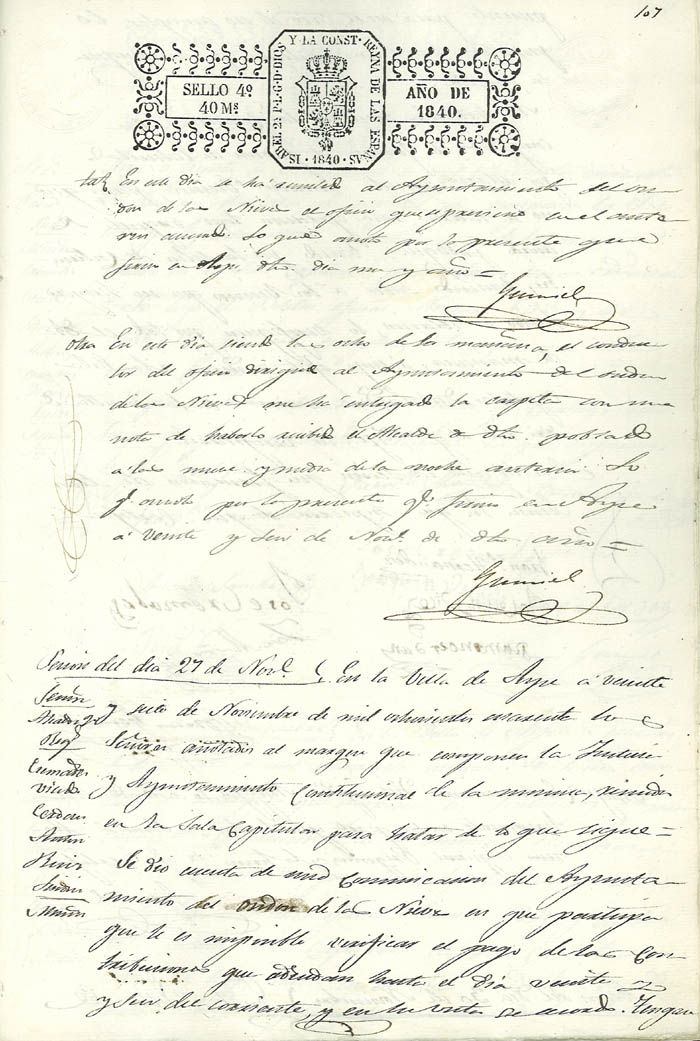 107
SELLO 4º
40 Mˢ
ISABEL 2ª P. L. G. D. DIOS Y LA CONST. REYNA DE LAS ESPAÑAS
1840
AÑO DE
1840.
En este dia se ha remitido al Ayuntamiento del on
don de las Nieves el oficio que se previene en el ante
rior acuerdo. Lo que anoto por la presente que
firmo en Aspe dho. dia mes y año =
Gumiel
Otra En este dia siendo las ocho de la mañana, el conduc
tor del oficio dirigido al Ayuntamiento del ondon
de las Nieves me ha entregado la carpeta con una
nota de haberlo recibido el Alcalde de dho. poblado
a las nueve y media de la noche anterior. Lo
q. anoto por la presente q. firmo en Aspe
á veinte y seis de Nov.ᵉ de dho año =
Gumiel
Sesion del dia 27 de Nov.ᵉ En la Villa de Aspe á veinte
y siete de Noviembre de mil ochocientos cuarenta los
Señores anotados al margen que componen la Justicia
y Ayuntamiento Constitucional de la misma, reunidos
en la Sala Capitular para tratar de lo que sigue =
Se dio cuenta de una comunicacion del Ayunta
miento del ondon de las Nieves en que participa
que le es imposible verificar el pago de las Con
tribuciones que adeudan hasta el dia veinte
y seis del corriente, y en su vista se acordó. Tengan
Señores
Cremades
Cerdan
Simon
Muñoz